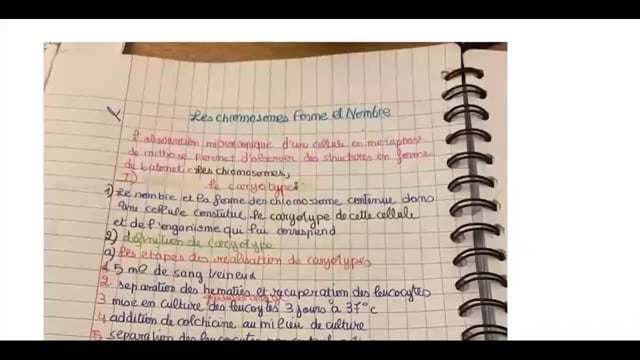 Les chromosomes Forme et Nombre
l'observation microscopique d'une cellule en metaphase
de mithose permet d'observer des structures en forme
de batonet = les chromosomes,
I)
le caryotype:
1) Le nombre et la forme des chromosome contenue dans
une cellule constitue le caryotype de cette cellule
et de l'organisme qui lui correspond
2) definition de caryotype
a) Les etapes des realisation de caryotypes
1 5 ml de sang veineux
2 separation des hematies et recuperation des leucocytes
3 mise en culture des leucoytes 3 jours à 37°c
4 addition de colchicine au milieu de culture
5 separation des leucocytes